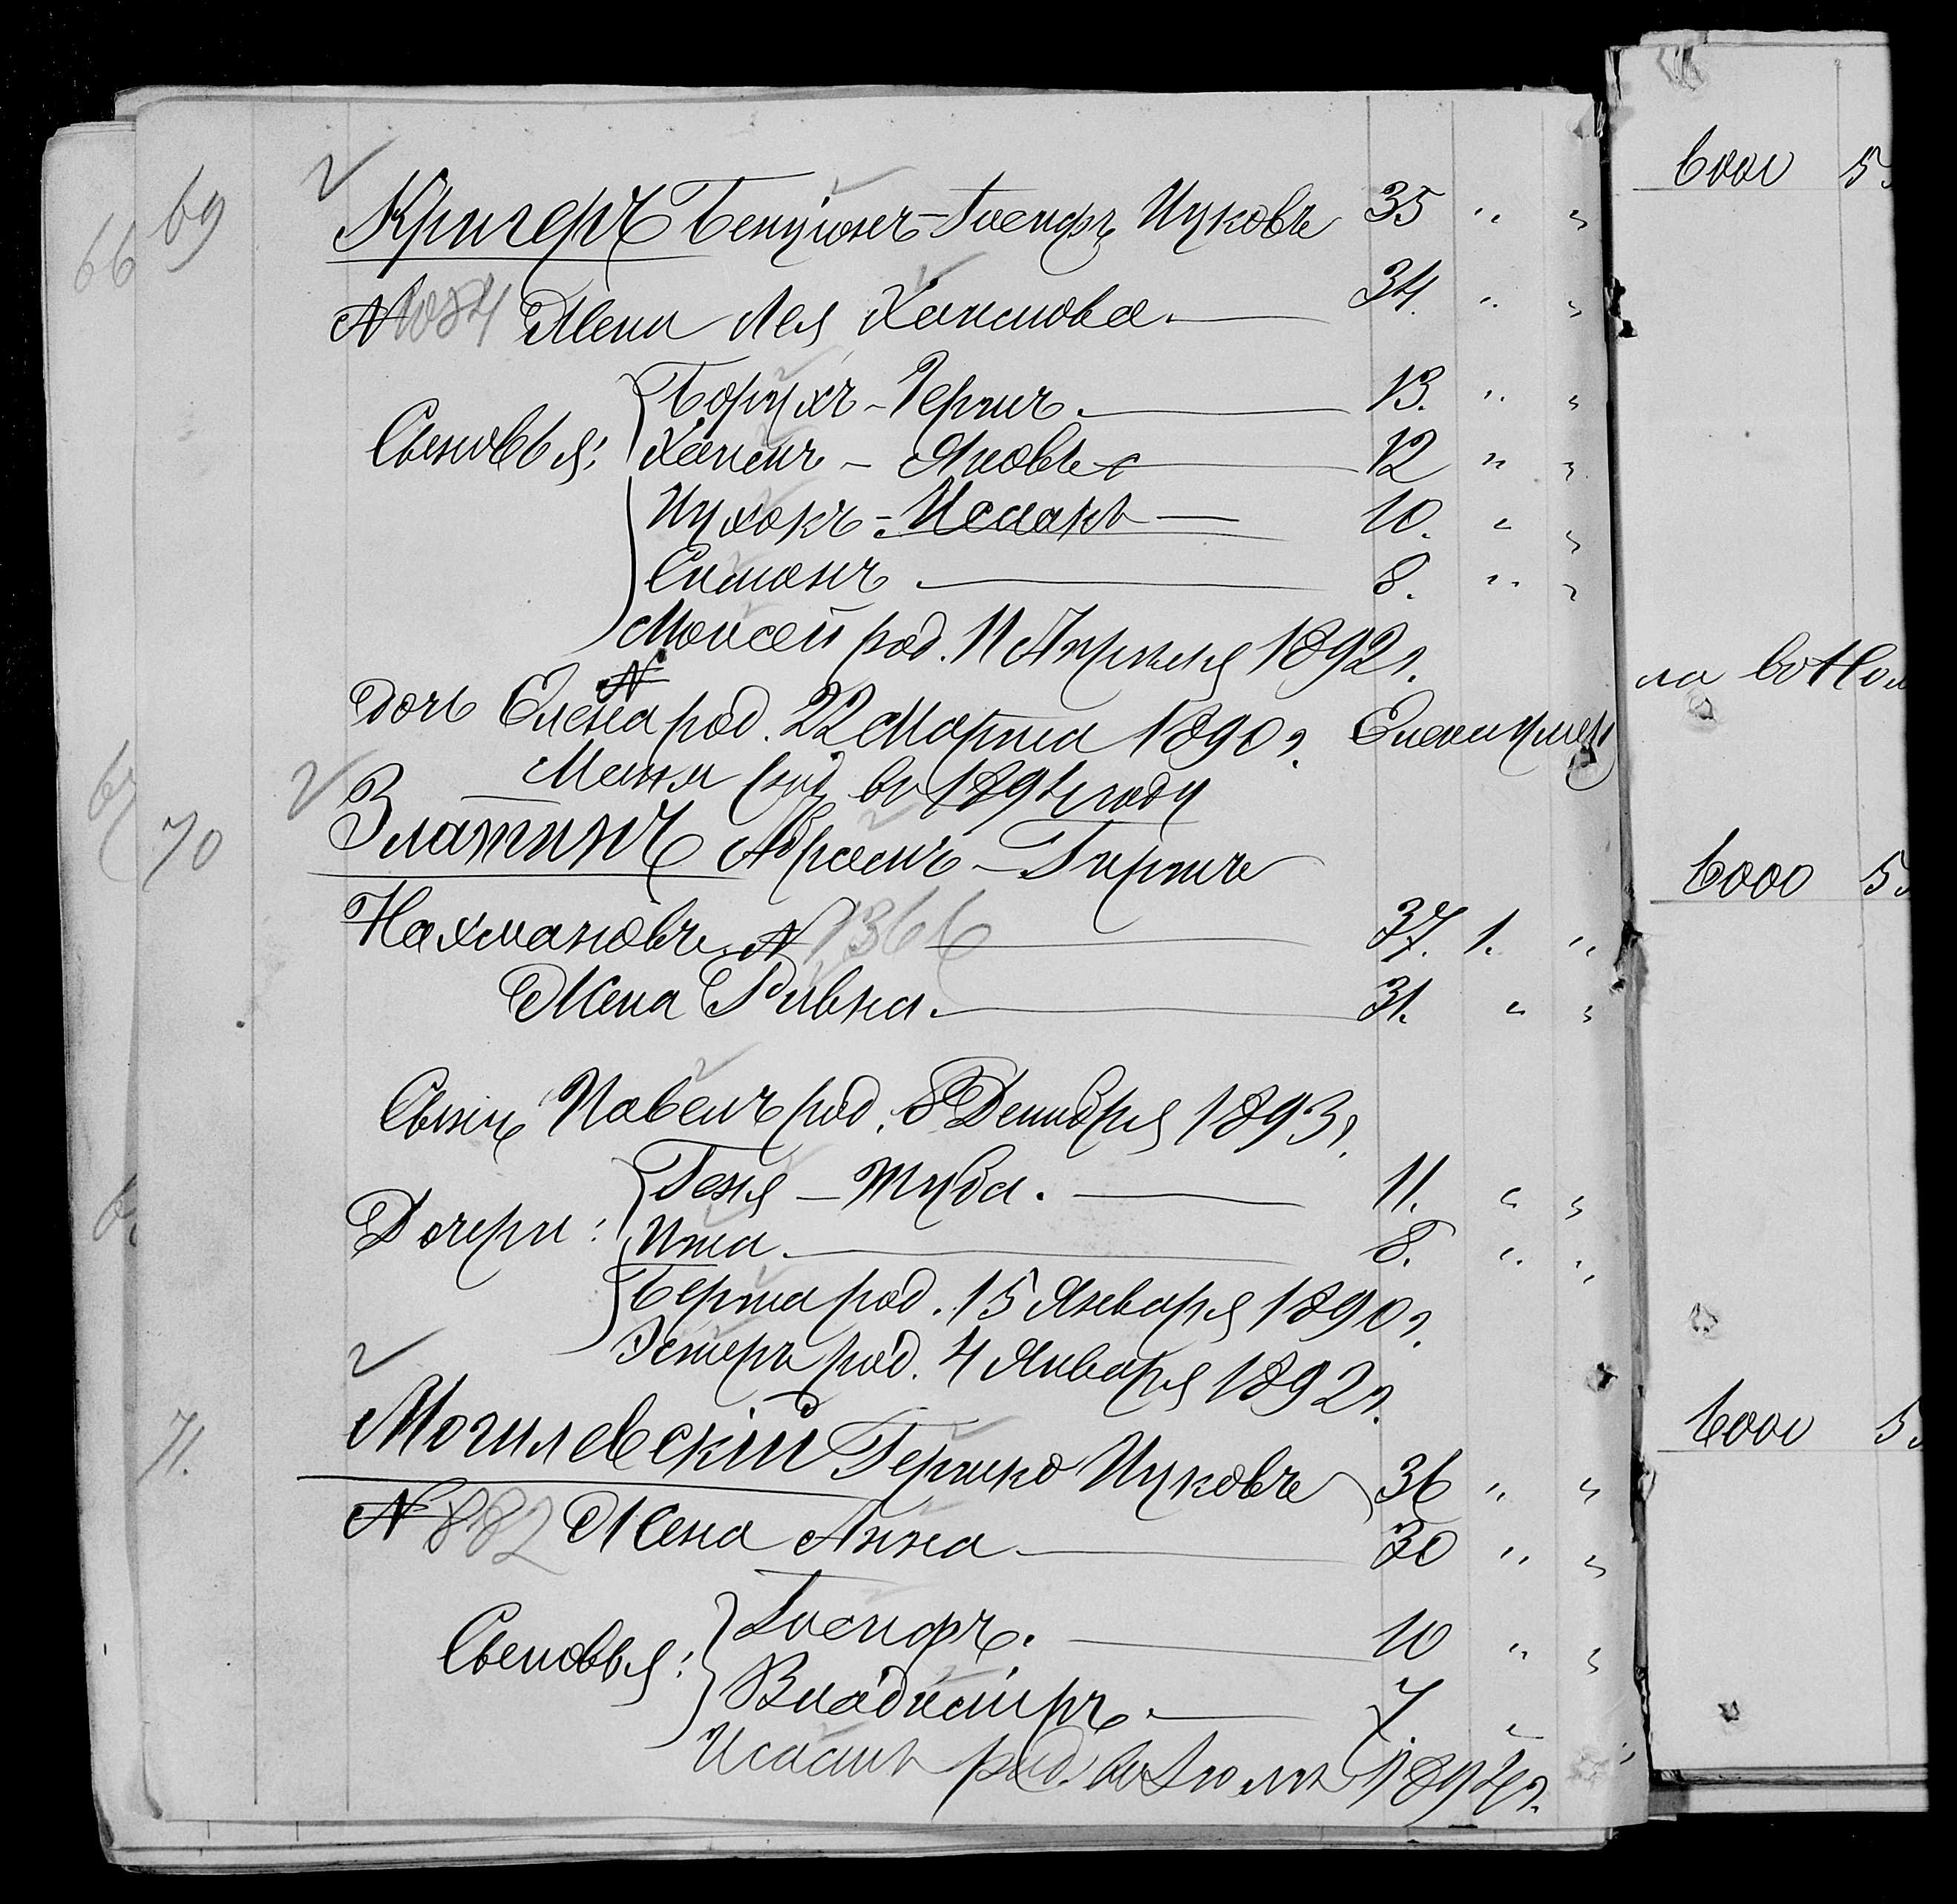 69 Кригеръ Бенціонъ-Іосифъ Ицковъ 35 " "
N 1084 Жена Лея Хаимова. 34. " "
Борухъ-Герши. 13. " "
Сыновья: Хаимъ - Яковъ 12 " "
Ицхокъ - Исаакъ 10. " "
Симонъ 8. " "
Моисей род. 11 Апрѣля 1892 г.
дочь Елена род. 22 Марта 1890 г.
Маня род. въ 1894 году
70 Златинъ Абрамъ-Гиршъ
Нахмановъ. N 1366 37. 1. "
Жена Ривка. 31. " "
Сынъ Павелъ род. 8 Декабря 1893 г.
Геня - Тауба. 11. " "
Дочери: Ита. 8. " "
Берта род. 15 Января 1890 г.
Эстеръ род. 4 Января 1892 г.
71. Могилевскій Гершко Ицковъ 36 " "
N 882 Жена Анна 30 " "
Іосифъ. 10 " "
Сыновья: Владиміръ. 7 "
Исаакъ род. въ Іюлѣ 1894 г.
66
6000 5
6000 5
6000 5